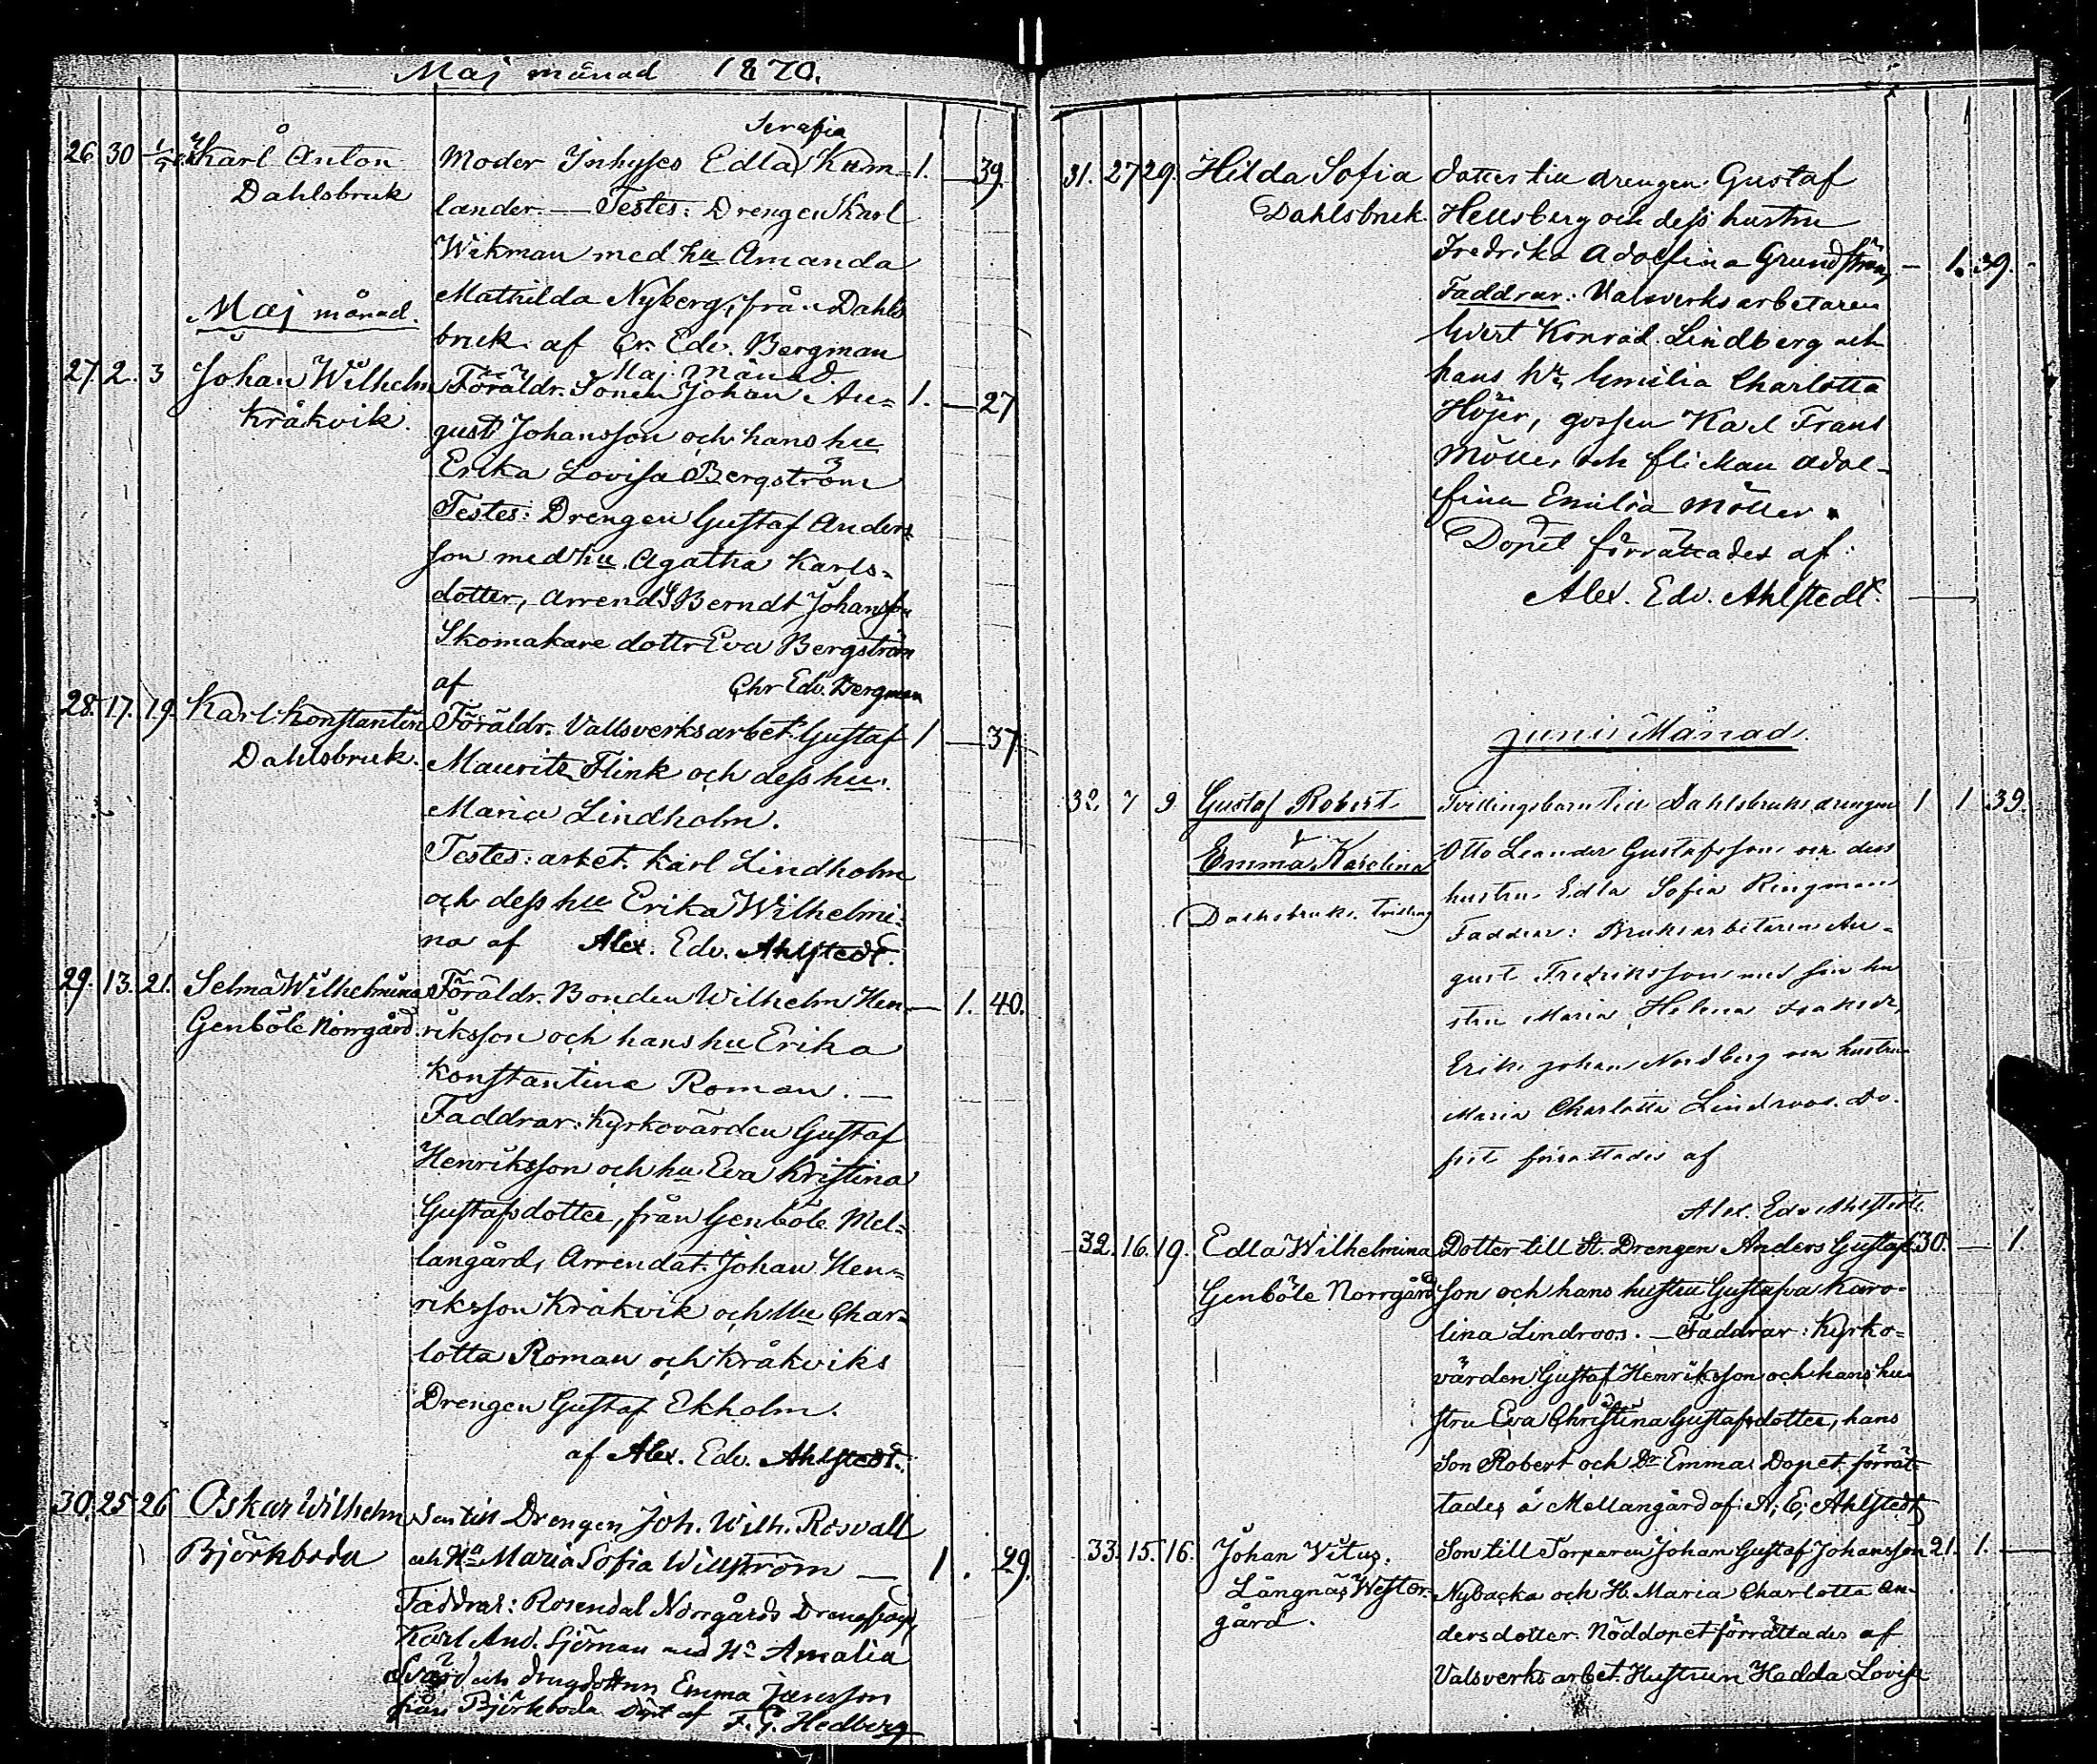 Maj månad 1870.
26. 30 Karl Anton
Dahlsbruk
Serafia
Moder Inhyses Edla Kum= 1. — 39.
lander. — Testes: Drengen Karl
Wikman med hu Amanda
Mathilda Nyberg, från Dahls
bruk. af Chr. Edv. Bergman
Maj månad.
Maj Månad.
27. 2. 3 Johan Wilhelm
Kråkvik.
Föräldr. Sonen Johan Au= 1. — 27
gust Johansson och hans hu
Erika Lovisa Bergström
Testes: Drengen Gustaf Anders=
son med hu Agatha Karls=
dotter, Arrend Berndt Johansson
Skomakare dottr Eva Bergström
af Chr Edv. Bergman
28. 17. 19. Karl Konstantin
Dahlsbruk.
Föräldr. Vallsverksarbet. Gustaf 1 — 37
Mauritz Flink och dess hu.
Maria Lindholm.
Testes: arbet. Karl Lindholm
och dess hu Erika Wilhelmi=
na af Alex. Edv. Ahlstedt.
29. 13. 21. Selma Wilhelmina
Genböle Norrgård.
Föräldr. Bonden Wilhelm Hen= — 1. 40.
riksson och hans hu Erika
Konstantina Roman. —
Faddrar: Kyrkovärden Gustaf
Henriksson och hu Eva Kristina
Gustafsdotter, från Genböle Mel=
langård, Arrendat. Johan Hen=
riksson Kråkvik och Hu Char=
lotta Roman och Kråkviks
Drengen Gustaf Ekholm.
af Alex. Edv. Ahlstedt.
30. 25 26 Oskar Wilhelm
Björkboda
Son till Drengen Joh. Wilh. Rosvall
och Ha Maria Sofia Willström — 1. 29.
Faddrar: Rosendal Norrgårds
Karl And. Sjöman med Ha Amalia
Svärd och Emma Jansson
från Björkboda Döpt af F. G. Hedberg
31. 27 29. Hilda Sofia
Dahlsbruk
dotter till drengen Gustaf
Hellsberg och dess hustru
Fredrika Adolfina Grundström, — 1. 39.
Faddrar: Valsverksarbetaren
Evert Konrad Lindberg och
hans hu Emilia Charlotta
Höjer, gossen Karl Frans
Möller och flickan Adol-
fina Emilia Möller.
Dopet förrättades af
Alex. Edv. Ahlstedt.
juni Månad.
32. 7 9 Gustaf Robert
&
Emma Karolina
Dahlsbruk.
Tvillingsbarn till Dahlsbruks drengen 1 1 39.
Otto Leander Gustafsson och dess
hustru Edla Sofia Ringman
Faddrar: Bruksarbetaren Au-
gust Fredriksson med sin hu
stru Maria Helena
Erik Johan Nordberg och hustru
Maria Charlotta Lindroos. Do-
pet förrättades af
Alex. Edv. Ahlstedt.
32. 16. 19. Edla Wilhelmina
Genböle Norrgård
Dotter till St. Drengen Anders Gustaf 30. — 1.
son och hans hustru Gustafva Karo-
lina Lindroos. — Faddrar: Kyrko=
värden Gustaf Henriksson och hans hu-
stru Eva Christina Gustafsdotter, hans
Son Robert och Dr Emma. Dopet förrät-
tades å Mellangård af: A. E. Ahlstedt
33. 15. 16. Johan Vitus.
Långnäs Wester-
gård.
Son till Torparen Johan Gustaf Johansson 21. 1. —
Nybacka och H. Maria Charlotta An-
dersdotter. Nöddopet förrättades af
Valsverks arbet. Hustrun Hedda Lovisa